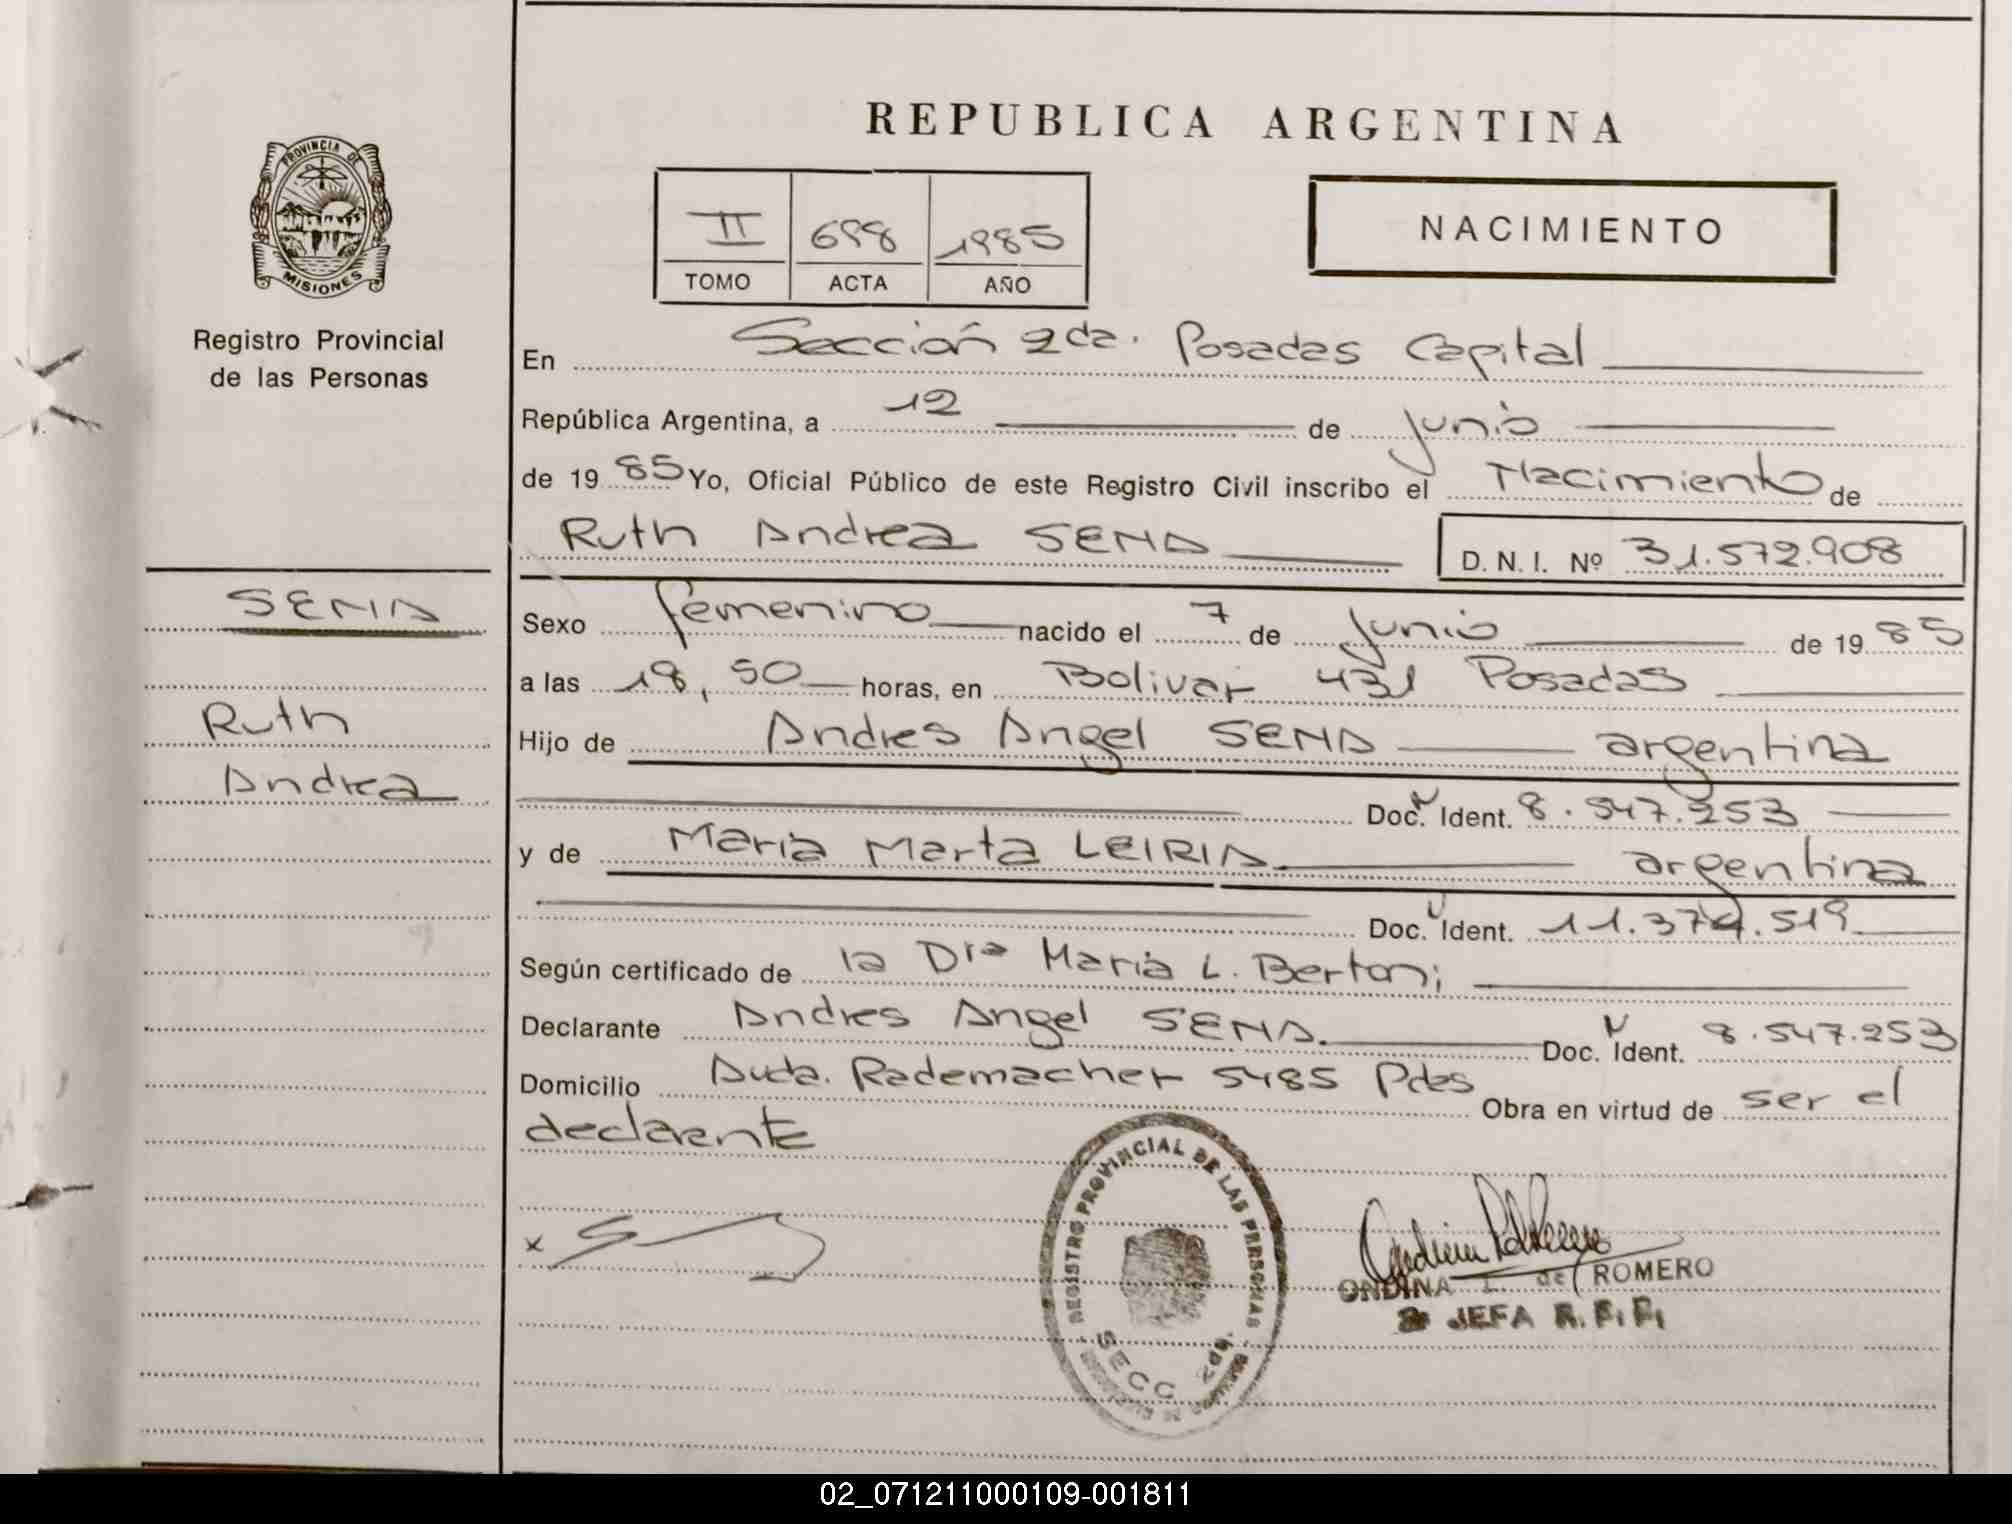 PROVINCIA DE
MISIONES
Registro Provincial
de las Personas
SENA
Ruth
Andrea
REPUBLICA ARGENTINA
II 698 1985
TOMO ACTA AÑO
NACIMIENTO
En Sección 2da. Posadas Capital
República Argentina, a 12 de junio
de 1985 Yo, Oficial Público de este Registro Civil inscribo el Nacimiento de
Ruth Andrea SENA D. N. I. Nº 31.572.908
Sexo femenino nacido el 7 de junio de 1985
a las 18,50 horas, en Bolivar 431 Posadas
Hijo de Andres Angel SENA argentina
Doc. N Ident. 8.547.253
y de Maria Marta LEIRIA argentina
Doc. Ident. 11.374.519
Según certificado de la Dra Maria L. Bertoni
Declarante Andres Angel SENA Doc. N Ident. 8.547.253
Domicilio Avda. Rademacher 5485 Pdas Obra en virtud de ser el
declarante
x
REGISTRO PROVINCIAL DE LAS PERSONAS
SECC 2da
ONDINA I. de ROMERO
JEFA R. P. P.
02_071211000109-001811